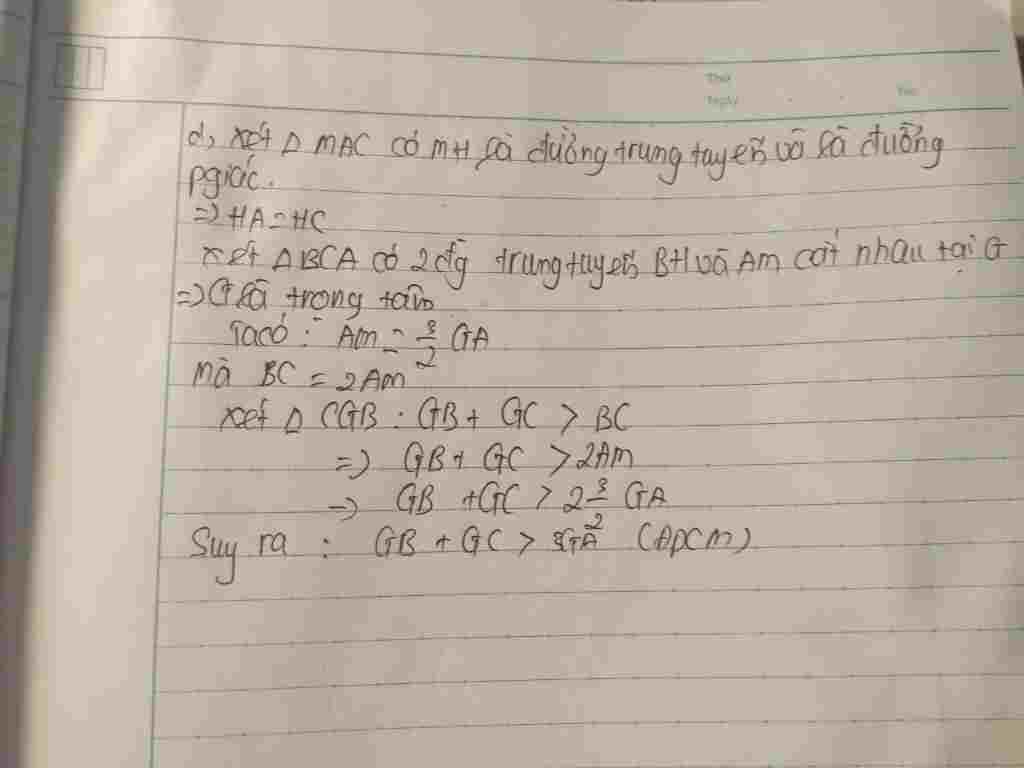 Thứ
Ngày
No.
d, xét Δ MAC có MH là đường trung tuyến và là đường
pgiác.
=> HA = HC
xét ΔBCA có 2 đg trung tuyến BH và AM cắt nhau tại G
=> G là trọng tâm
Ta có : AM = 3/2 GA
mà BC = 2AM
xét Δ CGB : GB + GC > BC
=> GB + GC > 2AM
=> GB + GC > 2 3/2 GA
Suy ra : GB + GC > 3GA (ĐPCM)